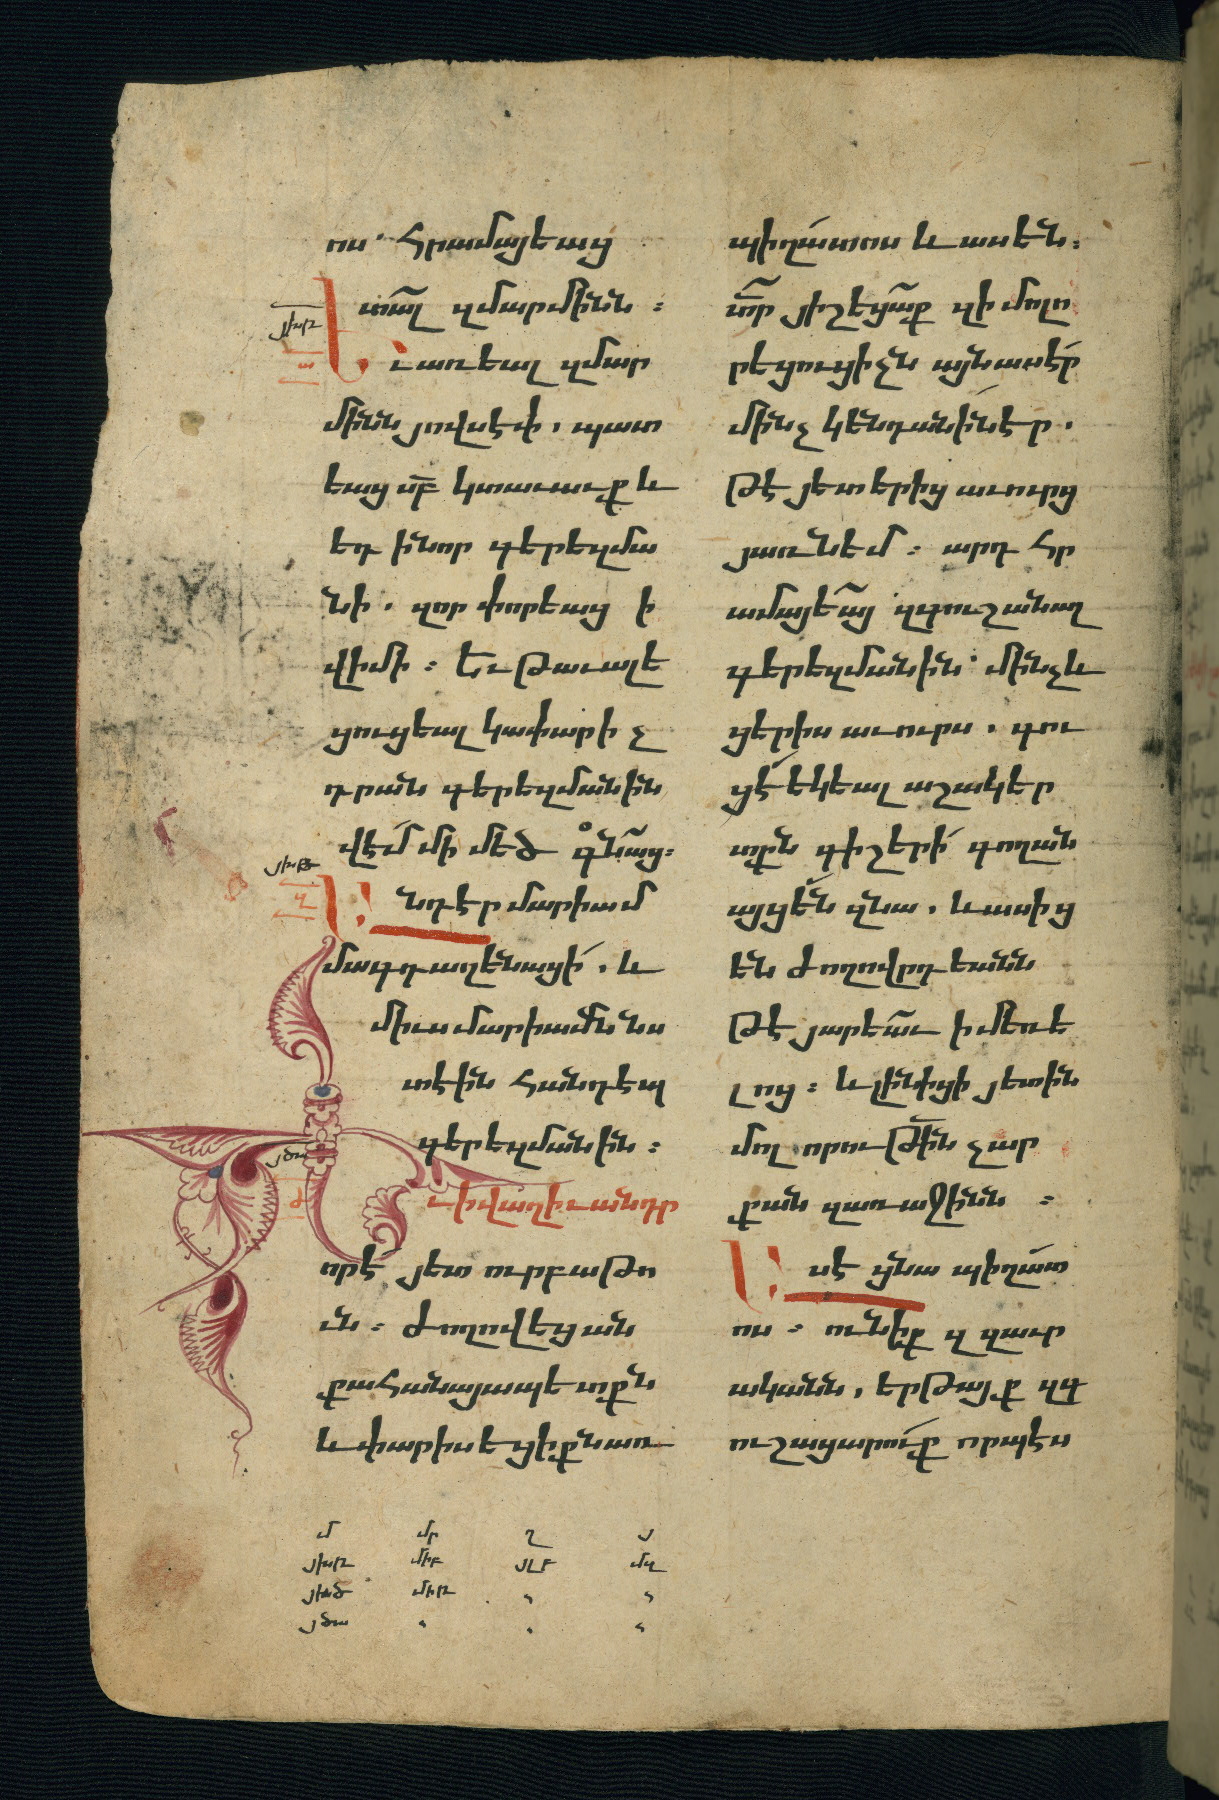 ոս՝ հրամայեաց
տալ զմարմինն ։
Եւ առեալ զմար
մինն յովսէփ , պատ
եաց սբ կտաւաւք և
եդ ինոր գերեզմա
նի . զոր փորեաց ի
վիմի ։ Եւ թաւալե
ցուցեալ կափարիչ
դրան գերեզմանին
վէմ մի մեծ գնաց։
Անդ էր մարիամ
մագդաղենացի . և
միւս մարիամն նս
տէին հանդէպ
գերեզմանին ։
Ի վաղիւ անդր
որ է յետ ուրբաթո
ւն ։ ժողովեցան
քահանայապետքն
և փարիսեցիքն առ
պիղատոս և ասեն։
տր յիշեցաք զի մոլո
րեցուցիչն այն ասէր
մինչ կենդանին էր .
թէ յետ երից աւուրց
յառնեմ ։ արդ հր
ամայեա զգուշանաղ
գերեզմանին՝ մինչև
ցերիս աւուրս . գու
ցէ եկեալ աշակեր
տքն գիշերի գողան
այցեն զնա . և ասից
են ժողովրդեանն
թէ յարեաւ ի մեռե
լոց ։ և լինիցի յետին
մոլ որութին չար
քան զառաջինն ։
Ասէ ցնա պիղատ
ոս ։ ունիք զ զաւր
ականն , երթայք զգ
ուշացարուք որպէս
յծա